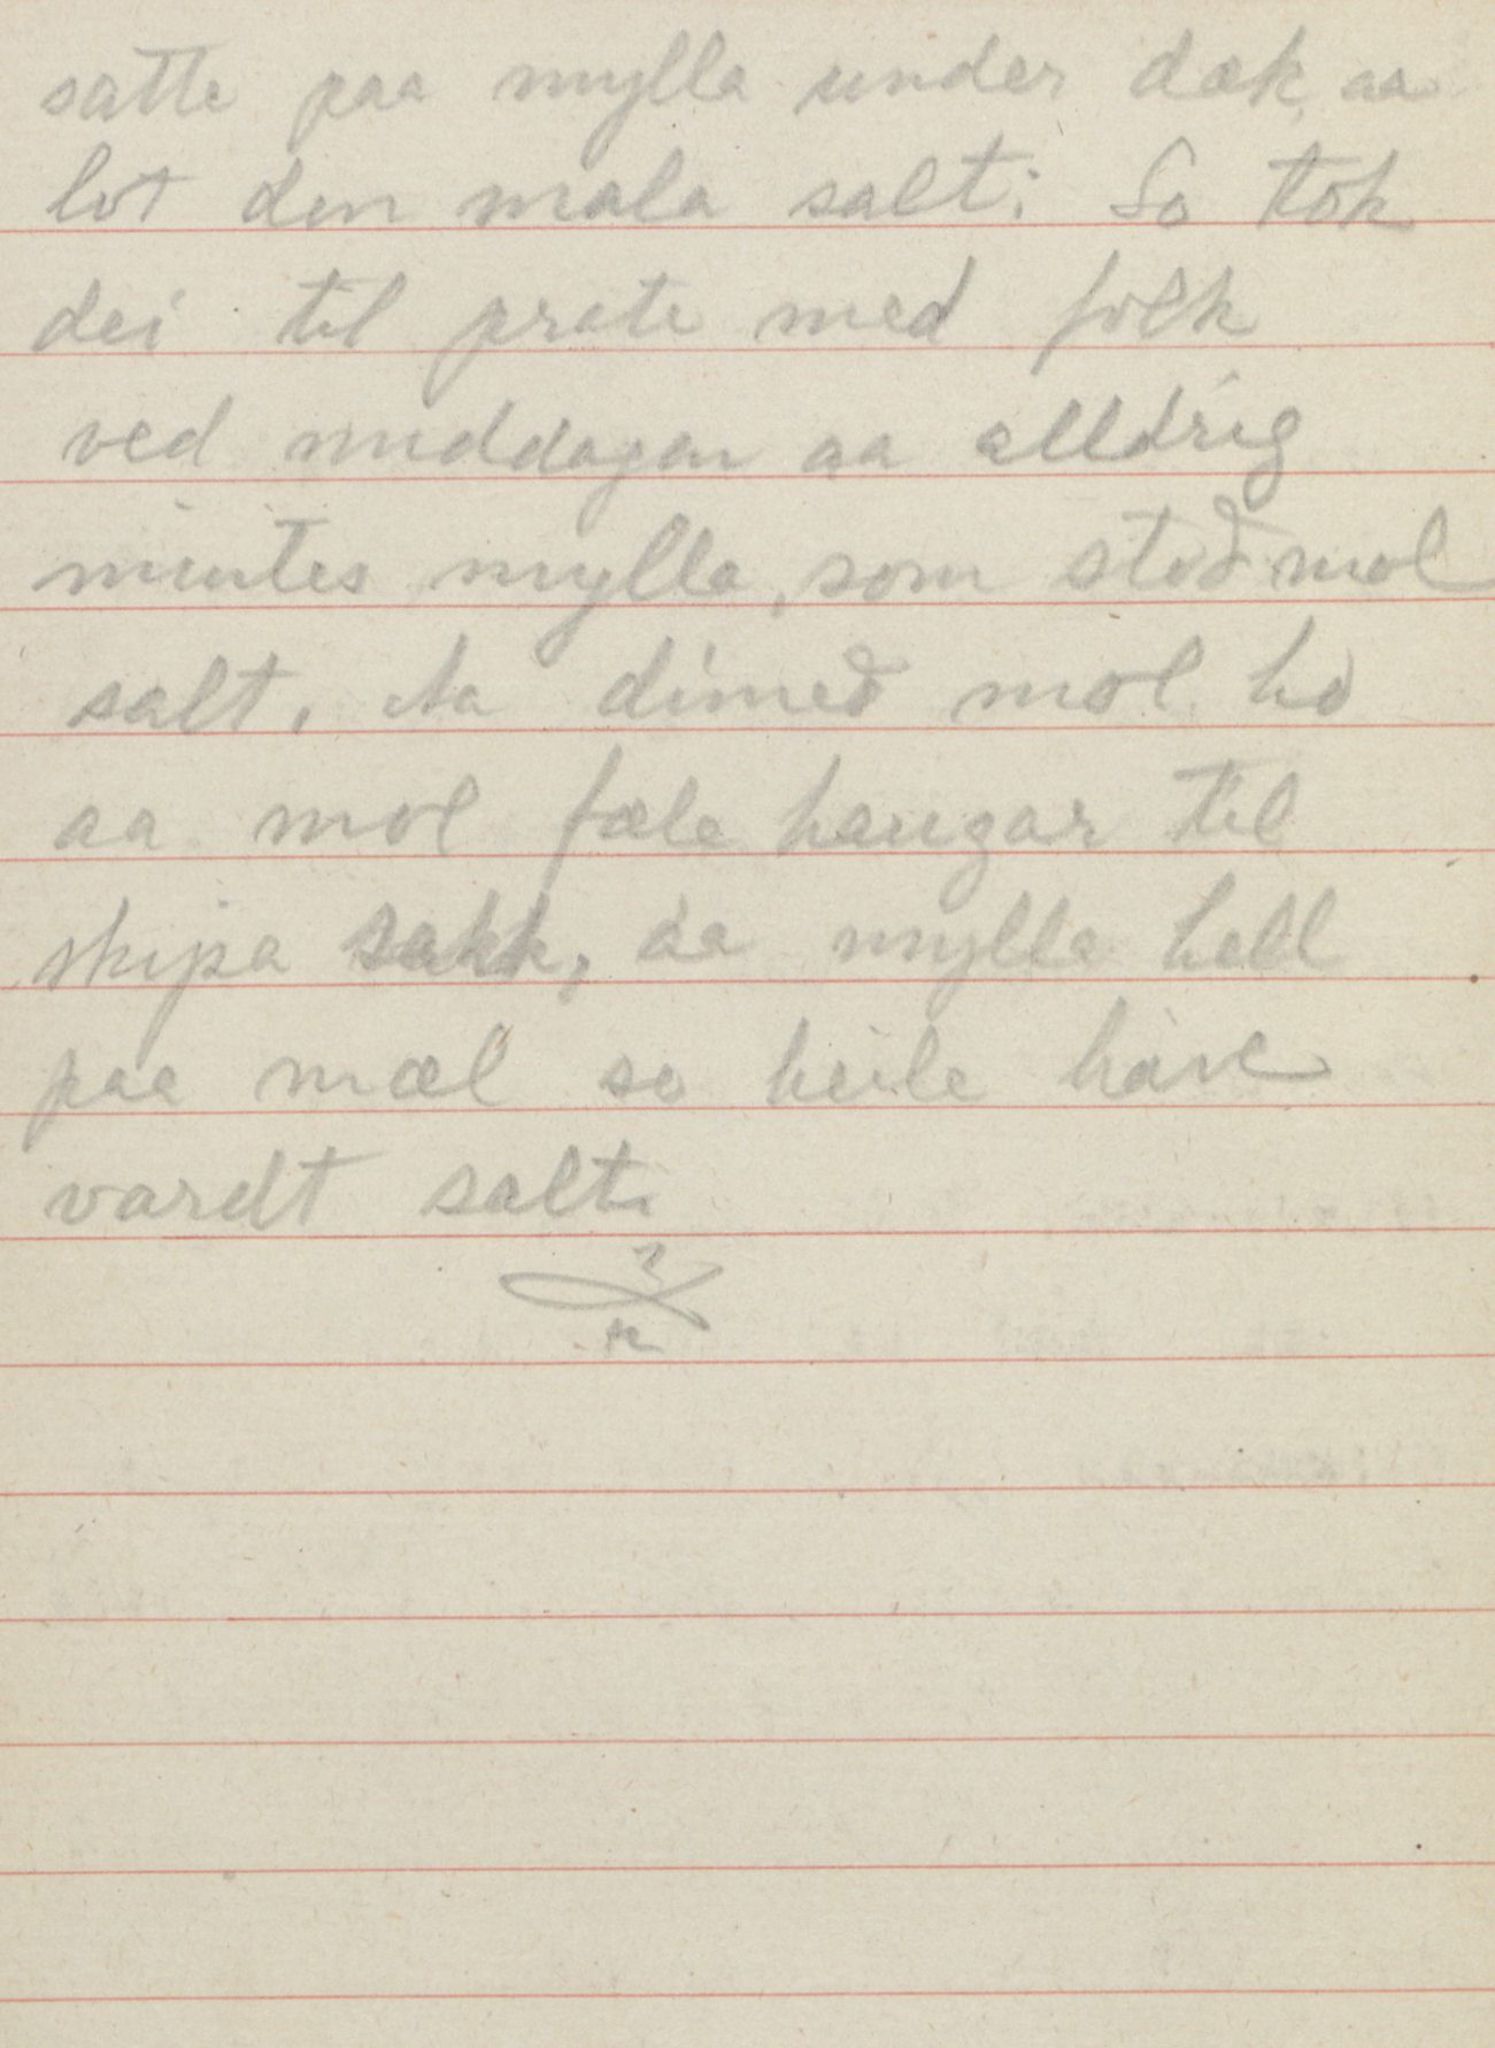 satte paa mylla under dæk, aa
lot den mala salt; So tok
dei til prate med folk
ved middagen aa alldrig
mintes mylla, som stod mol
salt. Aa dimed mol ho
aa mol fæle haugar til
skipa sakk, aa mylla hell
paa mæl so heile have
vardt salt.